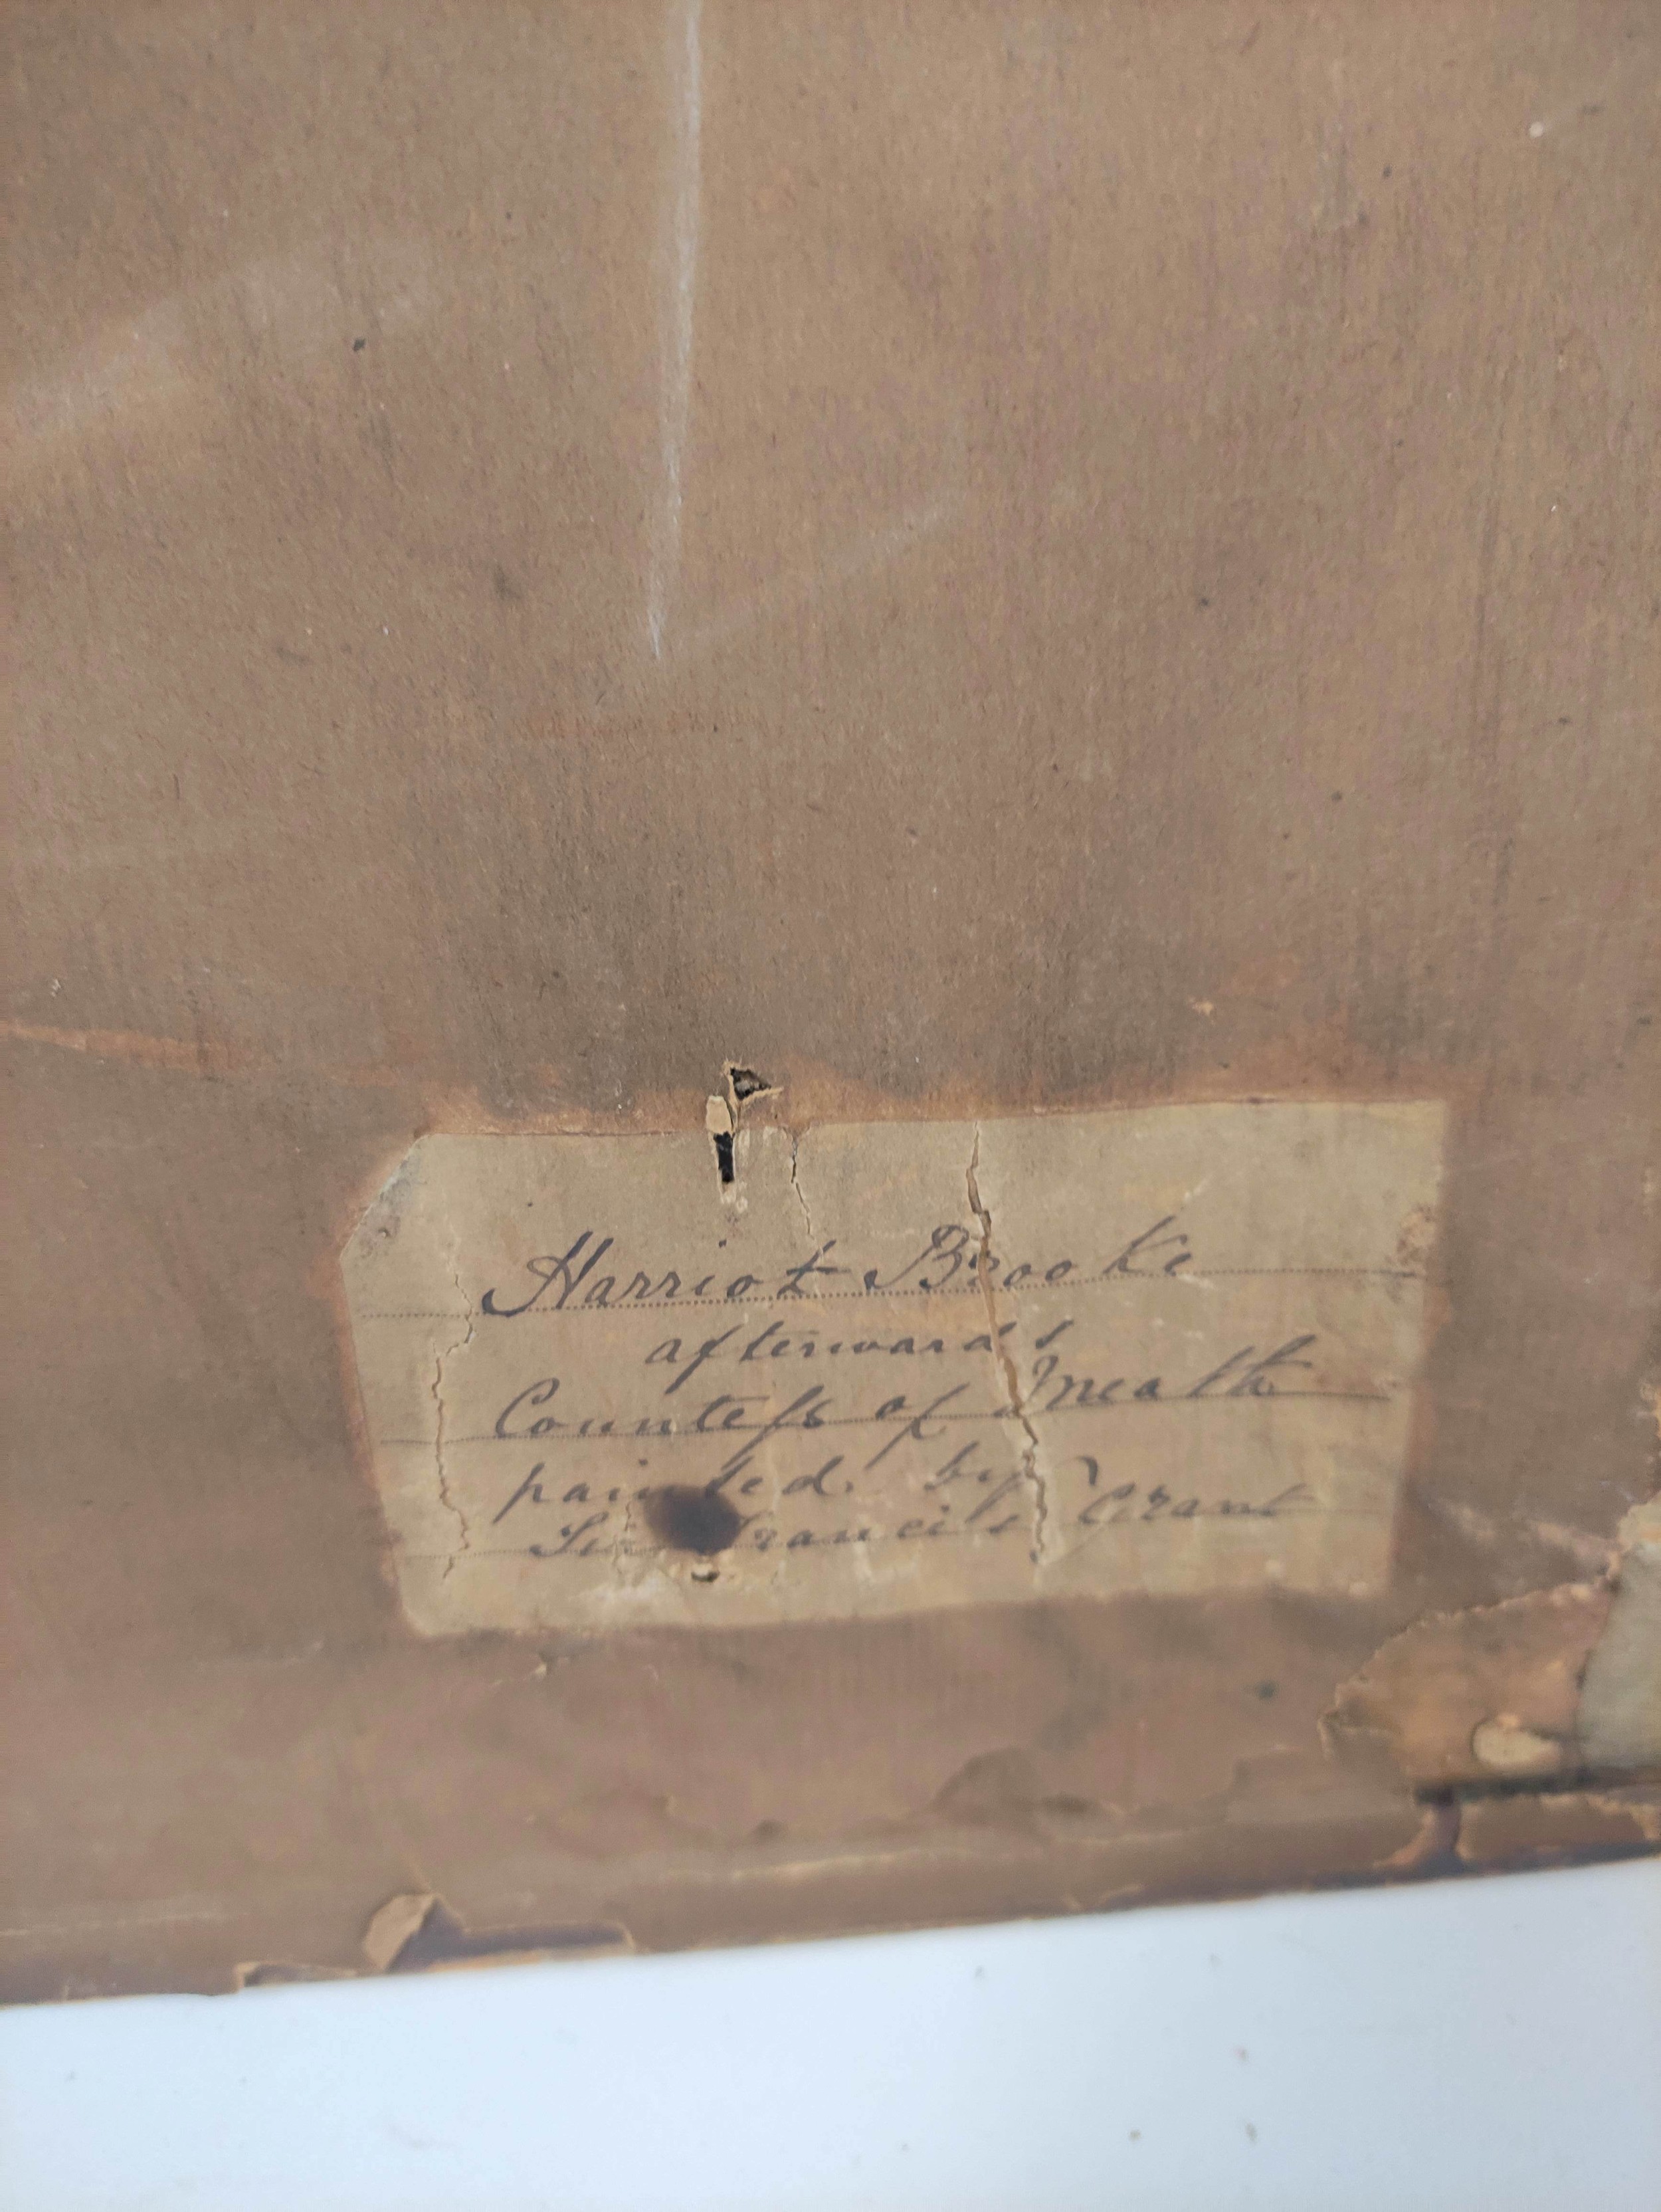 Harriot Brooke
afterwards
Countess of Meath
painted by
Sir Francis Grant